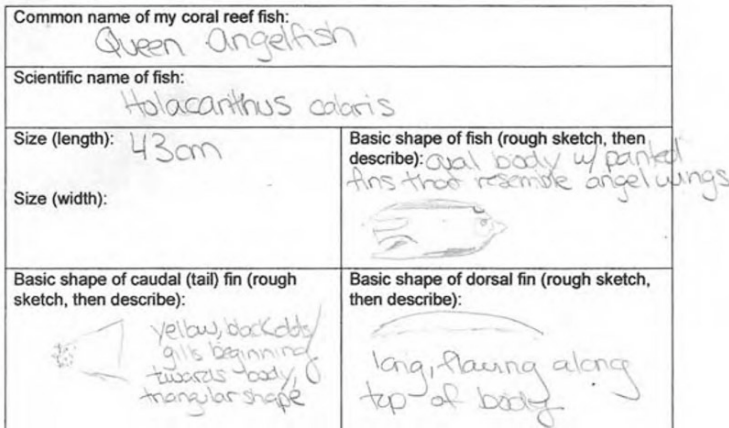 Common name of my coral reef fish:
Queen Angelfish
Scientific name of fish:
Holacanthus colaris
Size (length): 43cm
Size (width):
Basic shape of fish (rough sketch, then
describe): oval body w/ panted
fins that resemble angel wings
Basic shape of caudal (tail) fin (rough
sketch, then describe):
yellow, black dots/
gills beginning
towards body,
triangular shape
Basic shape of dorsal fin (rough sketch,
then describe):
long, flowing along
top of body